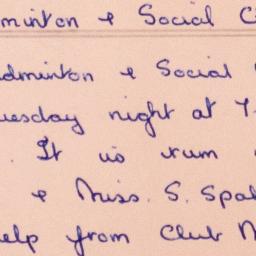 minton & Social C
dminton & Social
uesday night at 7
. It is run
& Miss. S. Spal
elp from Club M